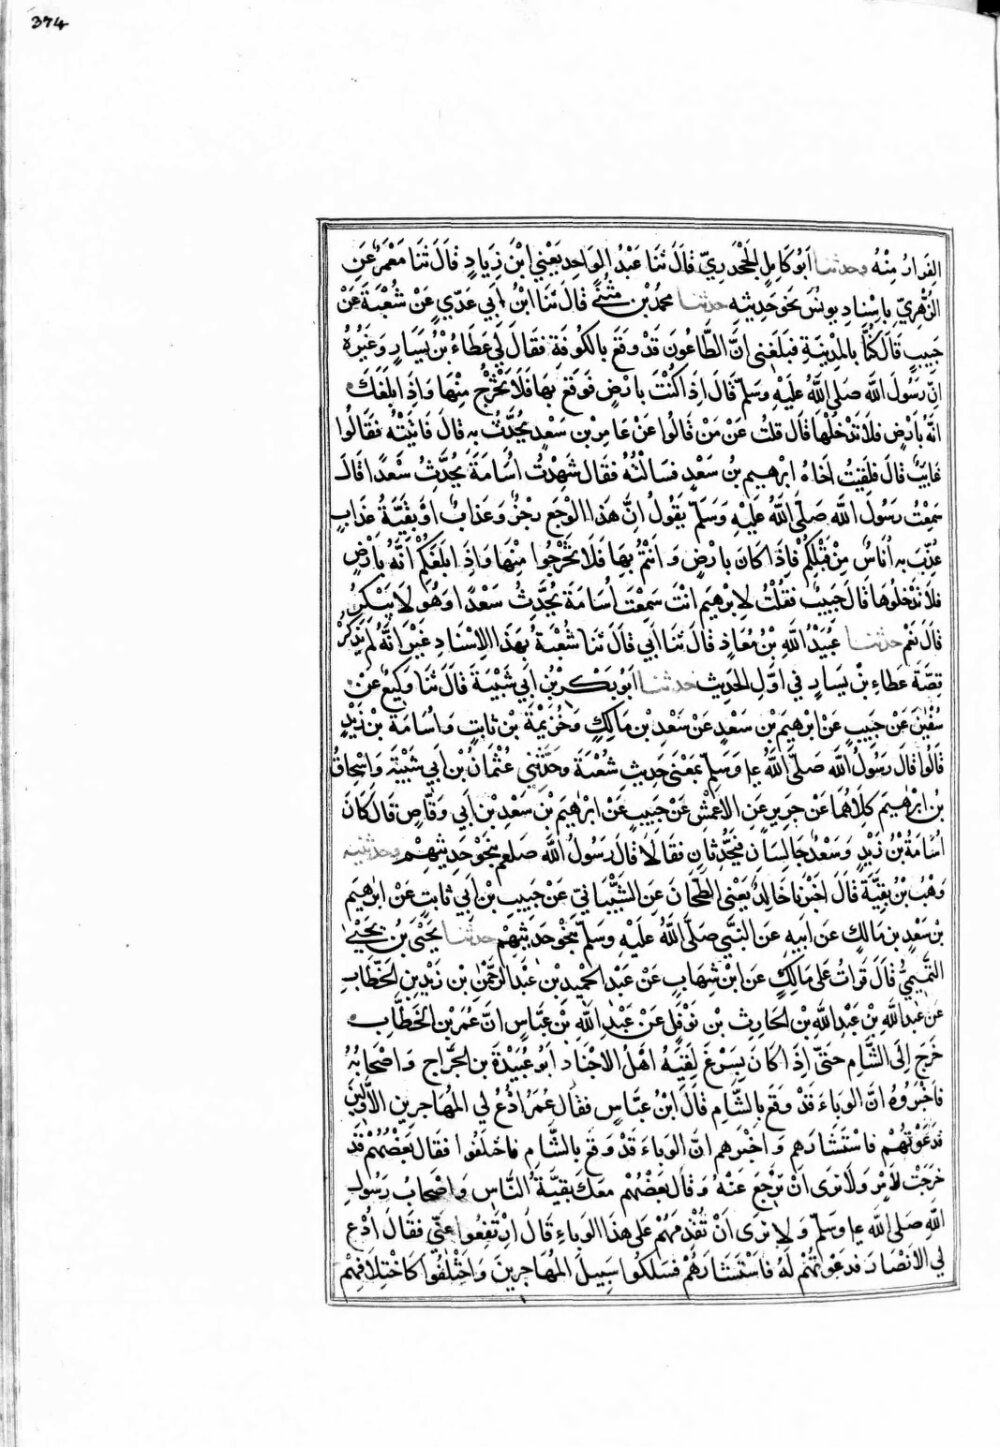 374
الفِرَارُ مِنْهُ وحدثنا اَبُو كَامِلٍ الجَحْدَرِيّ قَالَ ثَنَا عَبْدُ الوَاحِدِ يَعْنِي ابْنَ زِيَادٍ قَالَ ثَنَا مَعْمَرٌ عَنِ
الزُهْرِيّ بِاِسْنَادِ يونُسَ نَحوَ حَدِيثِهِ حدثنا محمدُ بْن مُثَنَّى قَالَ ثَنَا ابْنُ اَبي عَدِيّ عَنْ شُعْبَةَ عَنْ
حَبِيبٍ قَالَ كُنَّا بِالمَدِينَةِ فبَلَغَنِي انَّ الطَّاعُونَ قَدْ وَقَعَ بِالكُوفَةِ فقَالَ لِي عَطَاءُ بْنُ يَسَارٍ وَغَيْرُهُ
انّ رَسُولَ اللَّه صَلى اللَّهُ عَلَيْهِ وَسَلم قَالَ اِذَا كُنْتَ بِارْضٍ فَوَقَعَ بِهَا فَلَا تَخْرُجْ مِنْهَا وَاِذَا بَلَغَكَ
انَّهُ بِاَرْضٍ فلَا تَدْخُلْهَا قَالَ قلتُ عَنْ مَنْ قَالُوا عَنْ عَامِرِ بْن سَعْدٍ يُحَدِّثُ بِهِ قَالَ فَاَتَيْتُهُ فَقَالُوا
غَايِبٌ قَالَ فلَقِيتُ اَخَاهُ ابْرٰهِيمَ بْنَ سَعْدٍ فسَاَلْتُهُ فقَال شَهِدْتُ اُسَامَةَ يُحَدِّثُ سَعْدًا قَالَ
سَمِعْتُ رَسُولَ اللَّه صَلَّى اللَّهُ عَلَيْهِ وَسَلَّمَ يَقُولُ اِنَّ هَذَا الْوَجَعَ رِجْزٌ وَعَذَابٌ اَوْ بَقِيَّةُ عَذَابٍ
عُذِّبَ بِهِ اُنَاسٌ مِنْ قَبْلِكُمْ فَاِذَا كَانَ بِارْضٍ وَانْتُمْ بِهَا فَلَا تَخْرُجُوا مِنْهَا وَاِذَا بَلَغَكُمْ اَنَّهُ بِاَرْضٍ
فلَا تَدْخُلُوهَا قَالَ حَبِيبٌ فقُلْتُ لِابْرٰهِيمَ انْتَ سَمِعْتَ اُسَامَةَ يُحَدِّثُ سَعْدًا وَهُوَ لَا يُنْكِرُ
قَالَ نَعَمْ حدثنا عُبَيْدُ اللَّهِ بْنُ مُعَاذٍ قَالَ ثَنَا اَبِي قَالَ ثَنَا شُعْبَةُ بِهَذَا الاِسْنَادِ غَيْرَ انَّهُ لَمْ يَذْكُرْ
قِصّةَ عَطَاءِ بْن يَسَارٍ في اوَّلِ الحَدِيثِ حدثنا اَبُو بَكْرِ بْنُ اَبي شَيْبَةَ قَالَ ثَنَا وَكِيعٌ عَنْ
سُفْيٰنَ عَنْ حَبِيبٍ عَنْ ابْرٰهِيمَ بْن سَعْدٍ عَنْ سَعْدِ بْن مَالِكٍ وَخُزَيْمَةَ بْن ثَابِتٍ وَاُسَامَةَ بْن زَيْدٍ
قَالُوا قَالَ رَسُولُ اللَّه صَلَّى اللَّهُ ع‍ا وَسَلّم بمَعْنَى حَدِيث شُعْبَةَ وحَدَّثَني عُثْمَانُ بْن اَبي شَيْبَةَ وَاِسْحَاقُ
بْن ابْرٰهِيمَ كِلَاهُمَا عَنْ جَرِيرٍ عَنِ الاَعْمَشِ عَنْ حَبِيبٍ عَنْ ابْرٰهِيمَ بْن سَعْدِ بْن اَبي وَقَّاصٍ قَالَ كَانَ
اُسَامَةُ بْنُ زَيْدٍ وَسَعْدٌ جَالِسَانِ يَتَحَدَّثَانِ فقَالَا قَالَ رَسُولُ اللَّه صلعم بِنَحْوِ حَدِيثِهِمْ وحدثنيه
وَهْبُ بْنُ بَقِيَّةَ قَالَ اخْبَرَنَا خَالِدٌ يَعْنِي الطَّحَّانَ عَنِ الشَّيْبَانِيّ عَنْ حَبِيبِ بْن اَبي ثَابِتٍ عَنْ ابْرٰهِيمَ
بْن سَعْدِ بْن مَالِكٍ عَن اَبِيهِ عَنِ النَّبِيّ صَلَّى اللَّهُ عَلَيْهِ وَسَلّمَ بِنَحْوِ حَدِيثِهِمْ حدثنا يَحْيَى بْن يَحْيَى
التَّمِيمِيُّ قَالَ قَرَاْتُ عَلَى مَالِكٍ عَنَ ابْن شِهَابٍ عَنْ عَبْدِ الحَمِيدِ بْن عَبْدِ الرَّحْمٰن بْن زَيْدِ بْن الخَطَّابِ
عَنْ عَبْدِ اللَّه بْن عَبْدِ اللَّه بْن الحَارِثِ بْن نَوْفَلٍ عَنْ عَبْدِ اللَّه بْن عَبَّاسٍ انَّ عُمَرَ بْن الخَطَّابِ
خَرَجَ اِلَى الشَّامِ حَتّى اِذَا كَانَ بِسَرْغَ لَقِيَهُ اهْلُ الاَجْنَادِ اَبُو عُبَيْدَةَ بْن الجَرَّاحِ وَاصْحَابُهُ
فَاَخْبَرُوهُ انَّ الوَبَاءَ قَدْ وَقَعَ بِالشَّامِ قَالَ ابْنُ عَبَّاسٍ فقَال عُمَرُ ادْعُ لي المُهَاجِرِينَ الاَوَّلِينَ
فَدَعَوْتُهُمْ فَاسْتَشَارَهم وَاَخْبَرَهم انَّ الوَبَاءَ قَدْ وَقَعَ بِالشَّامِ فَاخْتَلَفُوا فقَال بَعْضُهُمْ قَدْ
خَرَجْتَ لِاَمْرٍ وَلَا نَرَى اَنْ تَرْجِعَ عَنْهُ وَقَالَ بَعْضُهُمْ مَعَكَ بَقِيَّةُ النَّاسِ وَاصْحَابُ رَسُولِ
اللَّهِ صَلى اللَّه ع‍ا وَسَلّمَ وَلَا نَرَى اَنْ تُقْدِمَهُمْ عَلَى هَذَا الوَبَاءِ قَالَ ارْتَفِعُوا عَنّي فقَالَ ادْعُ
لِي الاَنْصَارَ فدَعَوْتُهُمْ لَهُ فَاسْتَشَارَهُمْ فسَلَكُوا سَبِيلَ المُهَاجِرِينَ وَاخْتَلَفُوا كَاخْتِلَافِهِمْ